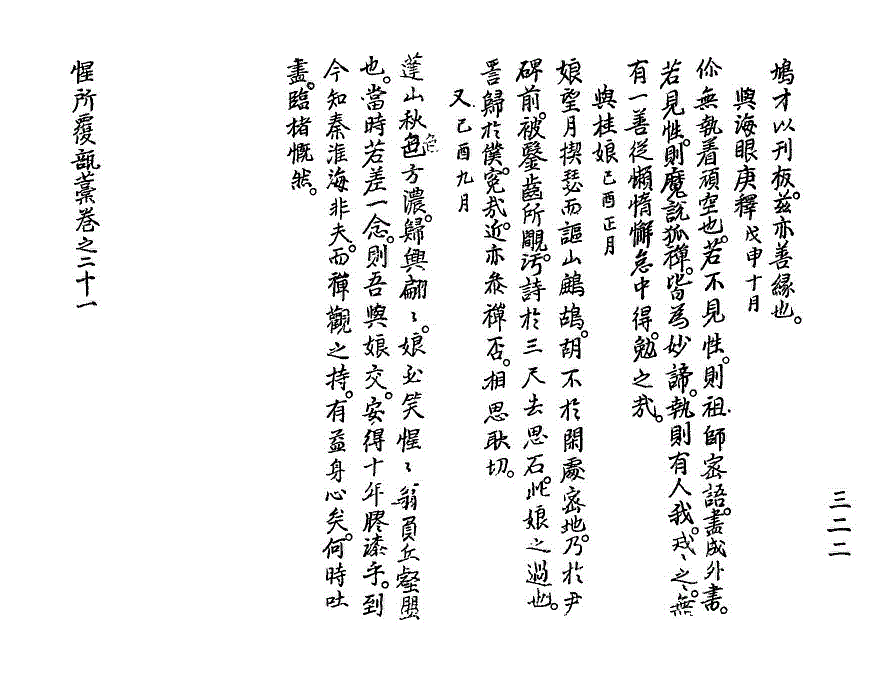 鳩才以刊板。茲亦善緣也。
與海眼庚釋 戊申十月
你無執着頑空也。若不見性。則祖師密語。盡成外書。
若見性。則魔說狐禪。皆為妙諦。執則有人我。戒々之々。無
有一善從懶惰懈怠中得。勉之哉。
與桂娘 己酉正月
娘望月揳瑟而謳山鷓鴣。胡不於閑處密地。乃於尹
碑前。被鑿齒所覸。汚詩於三尺去思石。此娘之過也。
詈歸於僕。寃哉。近亦參禪否。相思耿切。
又 己酉九月
蓬山秋色方濃。歸興翩々。娘必笑惺々翁負丘壑盟
也。當時若差一念。則吾與娘交。安得十年膠漆乎。到
今知秦淮海非夫。而禪觀之持。有益身心矣。何時吐
盡。臨楮慨然。
惺所覆瓿藁卷之二十一
三二二
色